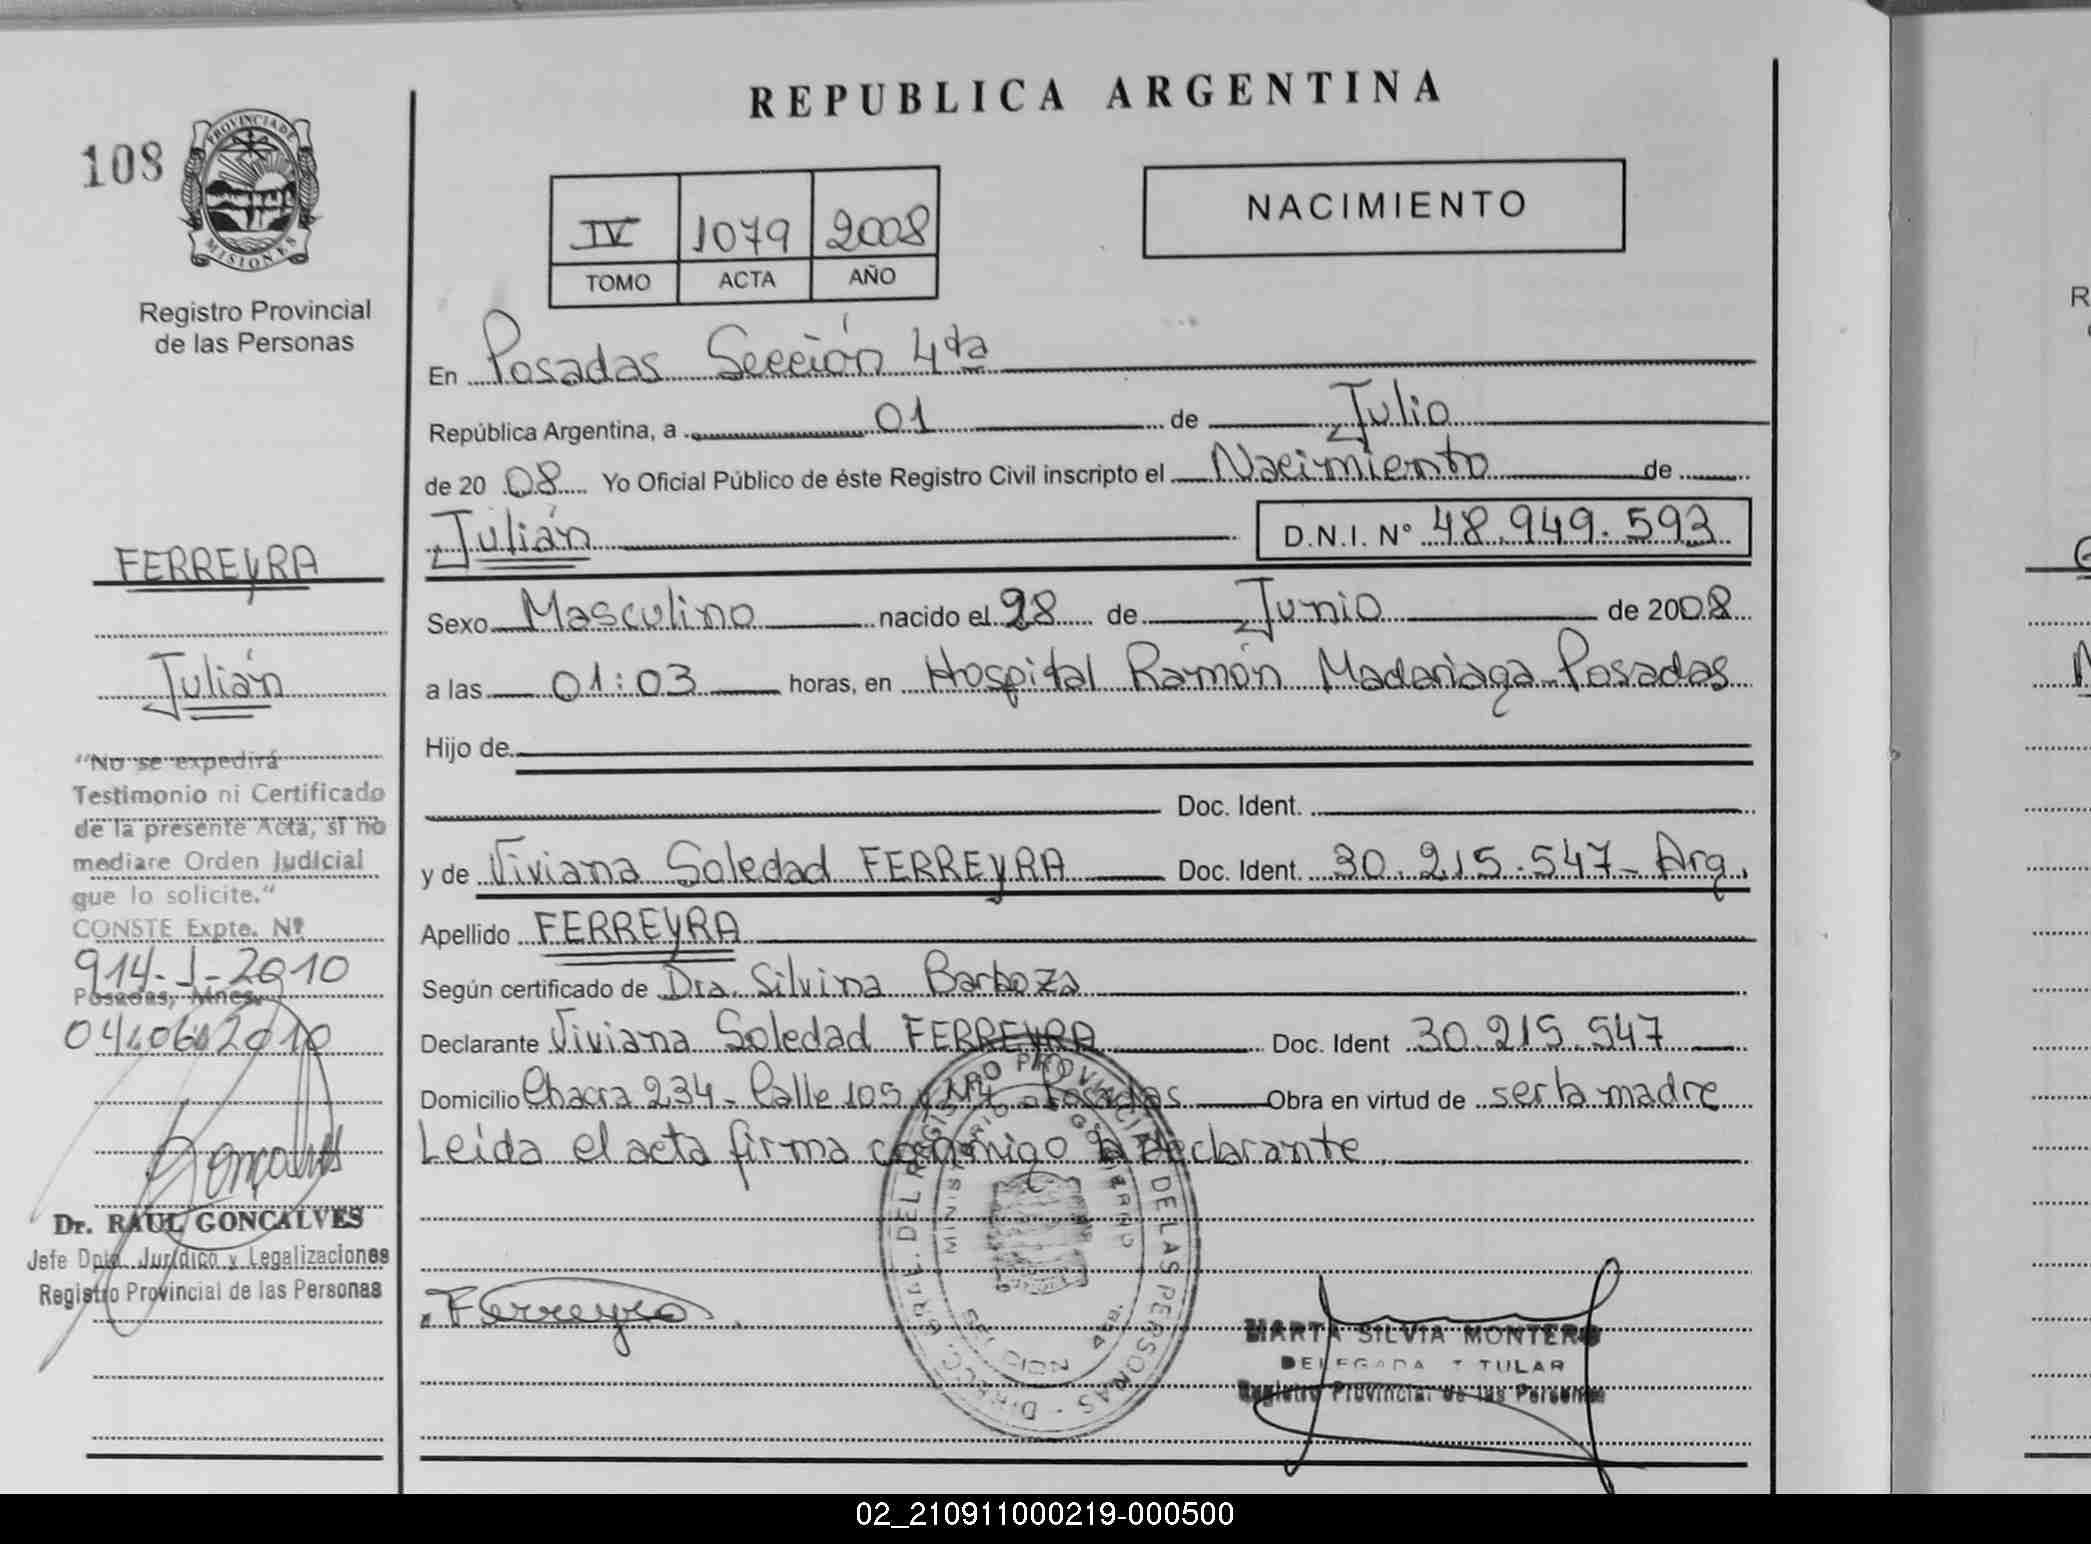 REPUBLICA ARGENTINA
108
PROVINCIA DE
MISIONES
Registro Provincial
de las Personas
IV 1079 2008
TOMO ACTA AÑO
NACIMIENTO
En Posadas Sección 4ta
República Argentina, a 01 de Julio
de 2008 Yo Oficial Público de éste Registro Civil inscripto el Nacimiento de
Julián D.N.I. N° 48.949.593
Sexo Masculino nacido el 28 de Junio de 2008
a las 01:03 horas, en Hospital Ramón Madariaga Posadas
Hijo de
Doc. Ident.
y de Viviana Soledad FERREYRA Doc. Ident. 30.215.547- Arg.
Apellido FERREYRA
Según certificado de Dra. Silvina Barboza
Declarante Viviana Soledad FERREYRA Doc. Ident 30.215.547
Domicilio Chacra 234- Calle 105 y - Posadas Obra en virtud de ser la madre
Leída el acta firma conmigo la declarante
Ferreyra
MARTA SILVIA MONTERO
DELEGADA TITULAR
Registro Provincial de las Personas
FERREYRA
Julián
"No se expedirá
Testimonio ni Certificado
de la presente Acta, si no
mediare Orden Judicial
que lo solicite."
CONSTE Expte. Nº
914-J-2010
Posadas, Mnes.
04 06 2010
Goncalves
Dr. RAUL GONCALVES
Jefe Dpto. Jurídico y Legalizaciones
Registro Provincial de las Personas
02_210911000219-000500